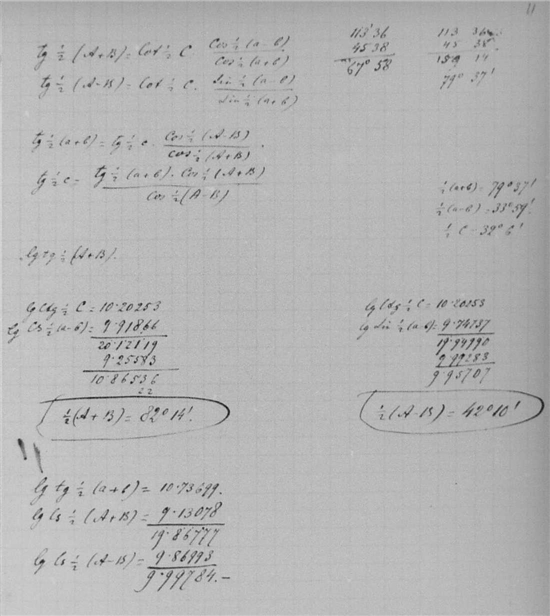 11
tg ½ (A+B) = Cot ½ C cos ½ (a-b) / cos ½ (a+b)
113° 36
45 38
67° 58
113 36
45 38
159 14
79° 37'
tg ½ (A-B) = Cot ½ C. sin ½ (a-b) / sin ½ (a+b)
tg ½ (a+b) = tg ½ c. cos ½ (A-B) / cos ½ (A+B).
tg ½ c = tg ½ (a+b). cos ½ (A+B) / cos ½ (A-B)
½ (a+b) = 79° 37'
½ (a-b) = 33° 59'
½ C = 32° 6'
lg tg ½ (A+B).
lg Cotg ½ C = 10.20253
lg Cs ½ (a-b) = 9.91866
20.12119
9.25583
10.86536
22
½ (A+B) = 82° 14'.
lg Cotg ½ C = 10.20253
lg sin ½ (a-b) = 9.74737
19.94990
9.99283
9.95707
½ (A-B) = 42° 10'
lg tg ½ (a+b) = 10.73699.
lg Cs ½ (A+B) = 9.13078
19.86777
lg Cs ½ (A-B) = 9.86993
9.99784.-